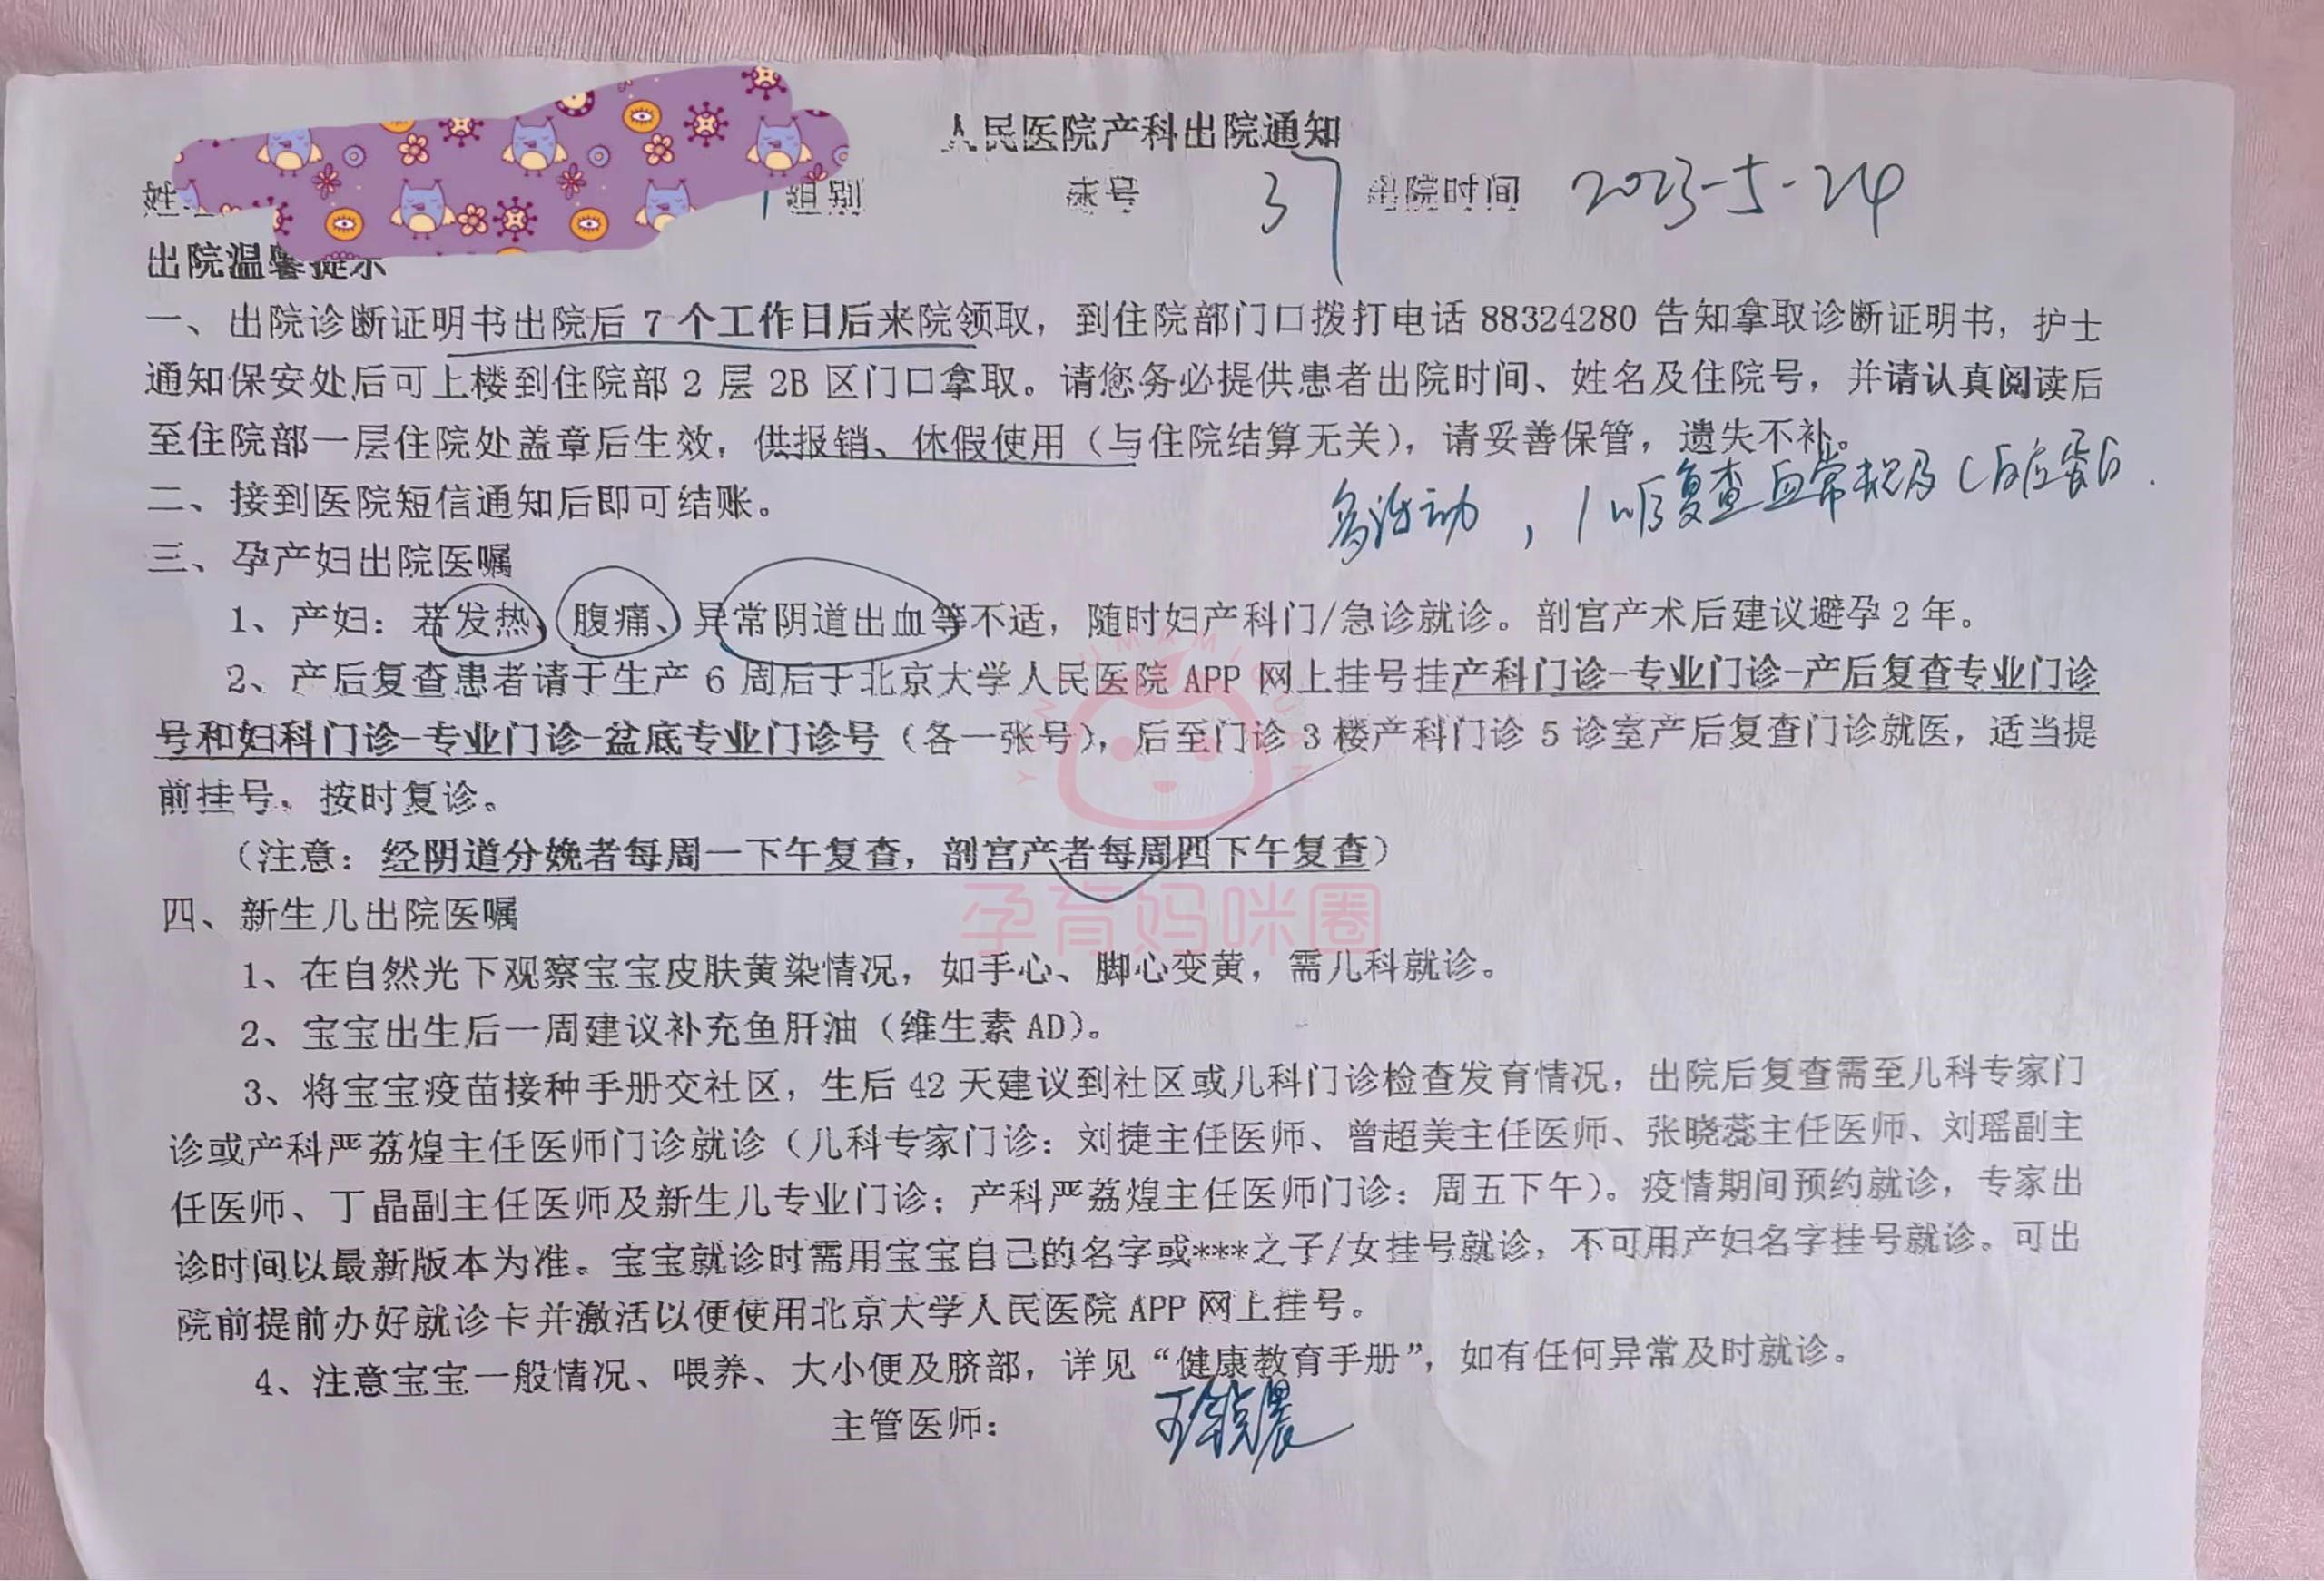 人民医院产科出院通知
姓 组别 床号 37 出院时间 2023-5-24
出院温馨提示
一、出院诊断证明书出院后 7 个工作日后来院领取，到住院部门口拨打电话 88324280 告知拿取诊断证明书，护士
通知保安处后可上楼到住院部 2 层 2B 区门口拿取。请您务必提供患者出院时间、姓名及住院号，并请认真阅读后
至住院部一层住院处盖章后生效，供报销、休假使用（与住院结算无关），请妥善保管，遗失不补。
二、接到医院短信通知后即可结账。
多活动，1w后复查血常规及C反应蛋白.
三、孕产妇出院医嘱
1、产妇：若发热、腹痛、异常阴道出血等不适，随时妇产科门/急诊就诊。剖宫产术后建议避孕 2 年。
2、产后复查患者请于生产 6 周后于北京大学人民医院 APP 网上挂号挂产科门诊-专业门诊-产后复查专业门诊
号和妇科门诊-专业门诊-盆底专业门诊号（各一张号），后至门诊 3 楼产科门诊 5 诊室产后复查门诊就医，适当提
前挂号，按时复诊。
（注意：经阴道分娩者每周一下午复查，剖宫产者每周四下午复查）
YUNYUMAMIQUAN
孕育妈咪圈
四、新生儿出院医嘱
1、在自然光下观察宝宝皮肤黄染情况，如手心、脚心变黄，需儿科就诊。
2、宝宝出生后一周建议补充鱼肝油（维生素 AD）。
3、将宝宝疫苗接种手册交社区，生后 42 天建议到社区或儿科门诊检查发育情况，出院后复查需至儿科专家门
诊或产科严荔煌主任医师门诊就诊（儿科专家门诊：刘捷主任医师、曾超美主任医师、张晓蕊主任医师、刘瑶副主
任医师、丁晶副主任医师及新生儿专业门诊；产科严荔煌主任医师门诊：周五下午）。疫情期间预约就诊，专家出
诊时间以最新版本为准。宝宝就诊时需用宝宝自己的名字或***之子/女挂号就诊，不可用产妇名字挂号就诊。可出
院前提前办好就诊卡并激活以便使用北京大学人民医院 APP 网上挂号。
4、注意宝宝一般情况、喂养、大小便及脐部，详见“健康教育手册”，如有任何异常及时就诊。
主管医师：